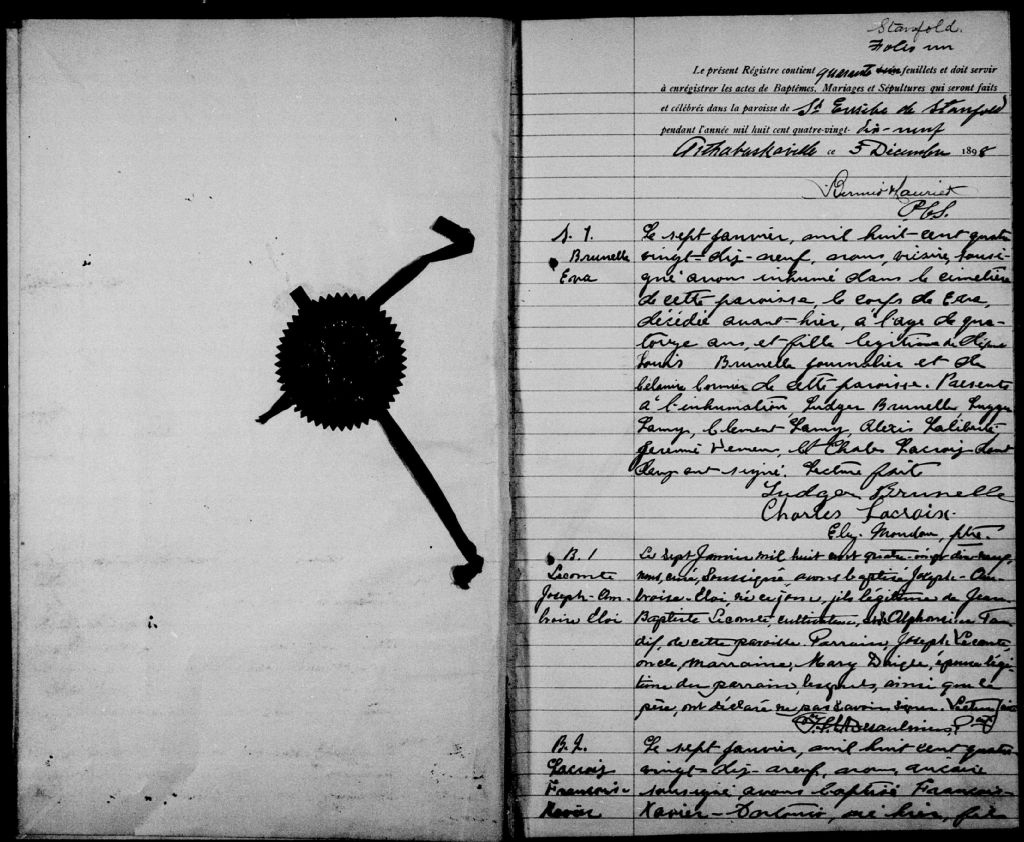 Stanfold.
Folio un
Le présent Régistre contient quarante feuillets et doit servir
à enrégistrer les actes de Baptêmes, Mariages et Sépultures qui seront faits
et célébrés dans la paroisse de St Eusèbe de Stanfold
pendant l'année mil huit cent quatre-vingt- dix-neuf
Arthabaskaville ce 5 Décembre 1898
P.C.S.
S. 1.
Brunelle
Eva
Le sept janvier, mil huit-cent quatre
vingt-dix-neuf, nous, vicaire, sousi-
gné avons inhumé dans le cimetière
de cette paroisse, le corps de Eva,
décédée avant-hier, à l'age de qua-
torze ans, et fille légitime de défunt
Louis Brunelle journalier et de
Cormier de cette paroisse. Présents
à l'inhumation, Ludger Brunelle,
Lamy, Clément Lamy, Alexis Laliberté
et Charles Lacroix dont
deux ont signé. Lecture faite
Ludger Brunelle
Charles Lacroix.
Ely. Mondou, ptre.
B. 1
Lecomte
Joseph-Am-
broise Eloi
Le sept Janvier mil huit cent quatre-vingt-dix-neuf,
nous, curé, soussigné, avons baptisé Joseph-Am-
broise-Eloi, né ce jour, fils légitime de Jean-
Baptiste Lecomte, cultivateur, et de Alphonsine Tar-
dif, de cette paroisse. Parrain, Joseph Lecomte,
oncle, marraine, Mary Daigle, épouse légi-
time du parrain, lesquels, ainsi que le
père, ont déclaré ne pas savoir signer. Lecture faite
Desaulniers, Ptre
B. 2.
Lacroix
François-
Xavier
Le sept janvier, mil huit cent quatre
vingt-dix-neuf, nous, vicaire
soussigné avons baptisé François-
Xavier-, né hier, fils